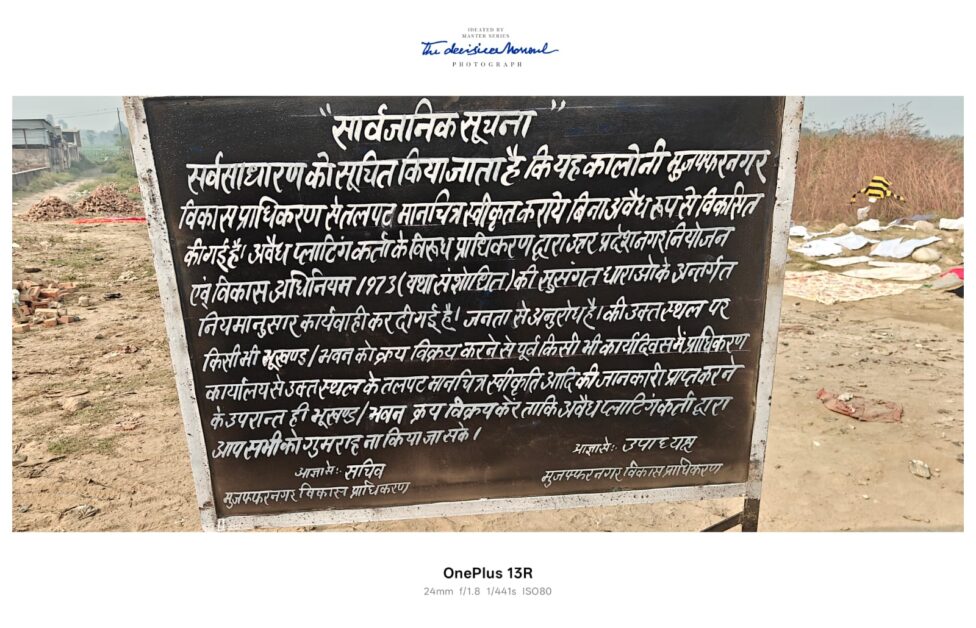 IDEATED BY
MASTER SERIES
The decisive Moment
PHOTOGRAPH
"सार्वजानिक सूचना"
सर्वसाधारण को सूचित किया जाता है कि यह कालोनी मुजफ्फरनगर
विकास प्राधिकरण से तलपट मानचित्र स्वीकृत कराये बिना अवैध रूप से विकसित
की गई है। अवैध प्लाटिंग कर्ता के विरूध प्राधिकरण द्वारा उत्तर प्रदेश नगर नियोजन
एंव् विकास अधिनियम 1973 (यथा संशोधित) की सुसंगत धाराओ के अन्तर्गत
नियमानुसार कार्यवाही कर दी गई है। जनता से अनुरोध है। की उक्त स्थल पर
किसी भी भूखण्ड / भवन को क्रय विक्रय करने से पूर्व किसी भी कार्यदिवस में प्राधिकरण
कार्यालय से उक्त स्थल के तलपट मानचित्र स्वीकृति आदि की जानकारी प्राप्त करने
के उपरान्त ही भूखण्ड / भवन क्रय विक्रय करे ताकि अवैध प्लाटिंग कर्ता द्वारा
आप सभी को गुमराह ना किया जा सके।
आज्ञा से:- सचिव
मुजफ्फरनगर विकास प्राधिकरण
आज्ञा से:- उपाध्यक्ष
मुजफ्फरनगर विकास प्राधिकरण
OnePlus 13R
24mm f/1.8 1/441s ISO80